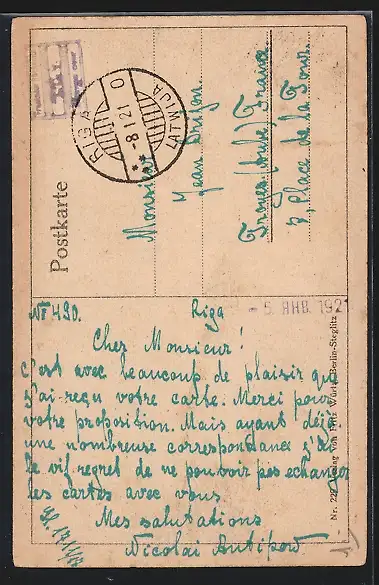 Postkarte
RIGA
-8 1 21 0
LATWIJA
Monsieur
Jean
Troyes (Aube) France
3, Place de la Tour.
№ 490.
Riga
- 5. ЯНВ. 192
Cher Monsieur!
C'est avec beaucoup de plaisir que
j'ai reçu votre carte. Merci pour
votre proposition. Mais ayant déjà
une nombreuse correspondance j'ai
le vif regret de ne pouvoir pas echanger
les cartes avec vous.
Mes salutations
Nicolai Antipow
Verlag von Fritz Würtz, Berlin-Steglitz